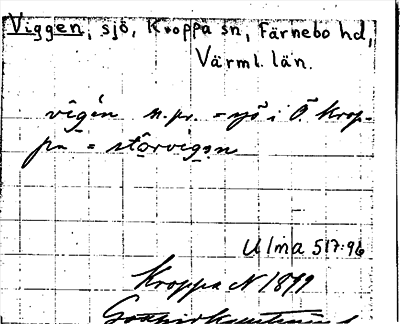 Viggen, sjö, Kroppa sn, Färnebo hd,
Värml. län.
vigén n. pr. = sjö i Ö. Krop-
pa = storvigen
Ulma 517:96
Kroppa N 1899